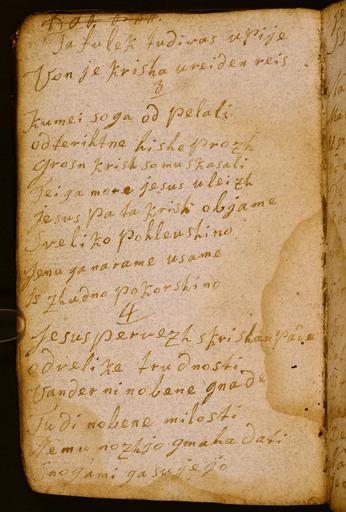 Ta tulek tudi vas vpije
Von je krisha vreiden reis
3
kumei so ga od pelali
od terihtne hishe prozh
Grosn krish so mu skasali
Tei ga more jesus vleizh
jesus pa ta krish objame
Sveliko pohleushino
jemu ga na rame vsame
is zhudno pokorshino
4
jesus pervezh skrisham pade
od velike trudnosti
Vander ni nobene gnade
Tudi nobene milosti
jemu nozhjo gmaha dati
Snogami ga sujejo